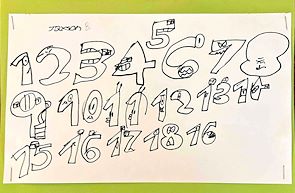 1 2 3 4 5 6 7 8
9 10 11 12 13 14
15 16 17 18 16